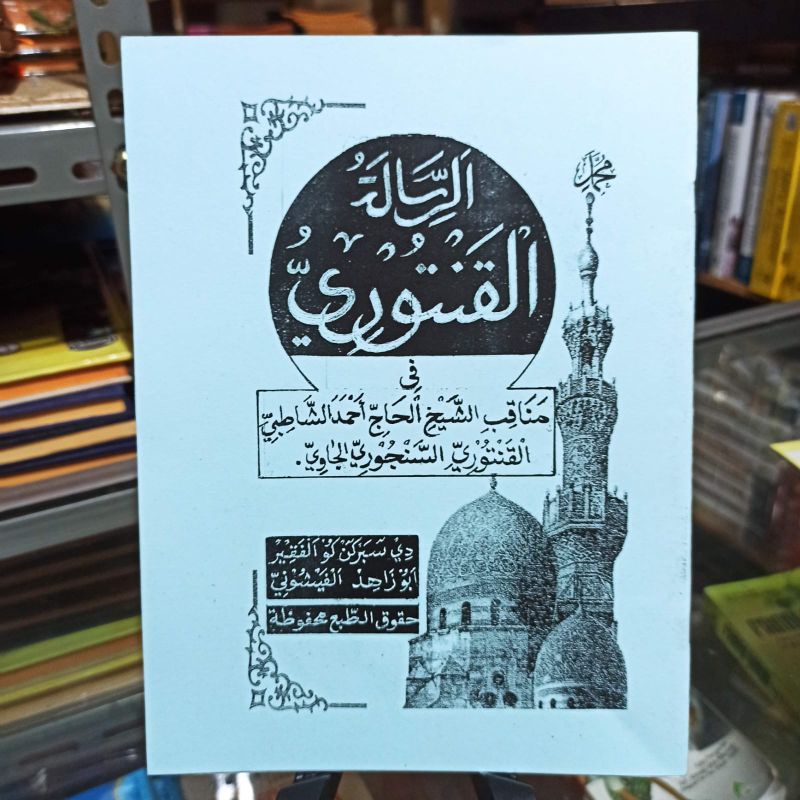 محمد
اَلرِّسَالَةُ
الْقَنْتُوْرِيُّ
فِي
مَنَاقِبِ الشَّيْخِ الْحَاجِّ أَحْمَدَ الشَّاطِبِيِّ
الْقَنْتُوْرِيِّ السَّنْجُوْرِيِّ الْجَاوِيِّ.
دِيْ سَبَرْكَنْ كَوْ الْفَقِيْر
اَبُوْ زَاهِدْ الْفَيْشُوْنِيّْ
حقوق الطّبع محفوظة